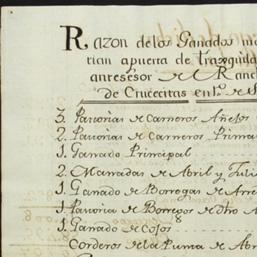 Razon de los Ganados
rian apuerta de
antesesor de el Ranc
de Crucecitas en
3. Pastorias de Carneros Añejos
2. Pastorias de Carneros Prima
1. Ganado Principal
2. Manadas de Abril y Juli
1. Ganado de Borregas de Arre
1. Pastoria de Borregos de Otro A
1. Ganado de Cojos
Corderos de la Puma de Abr